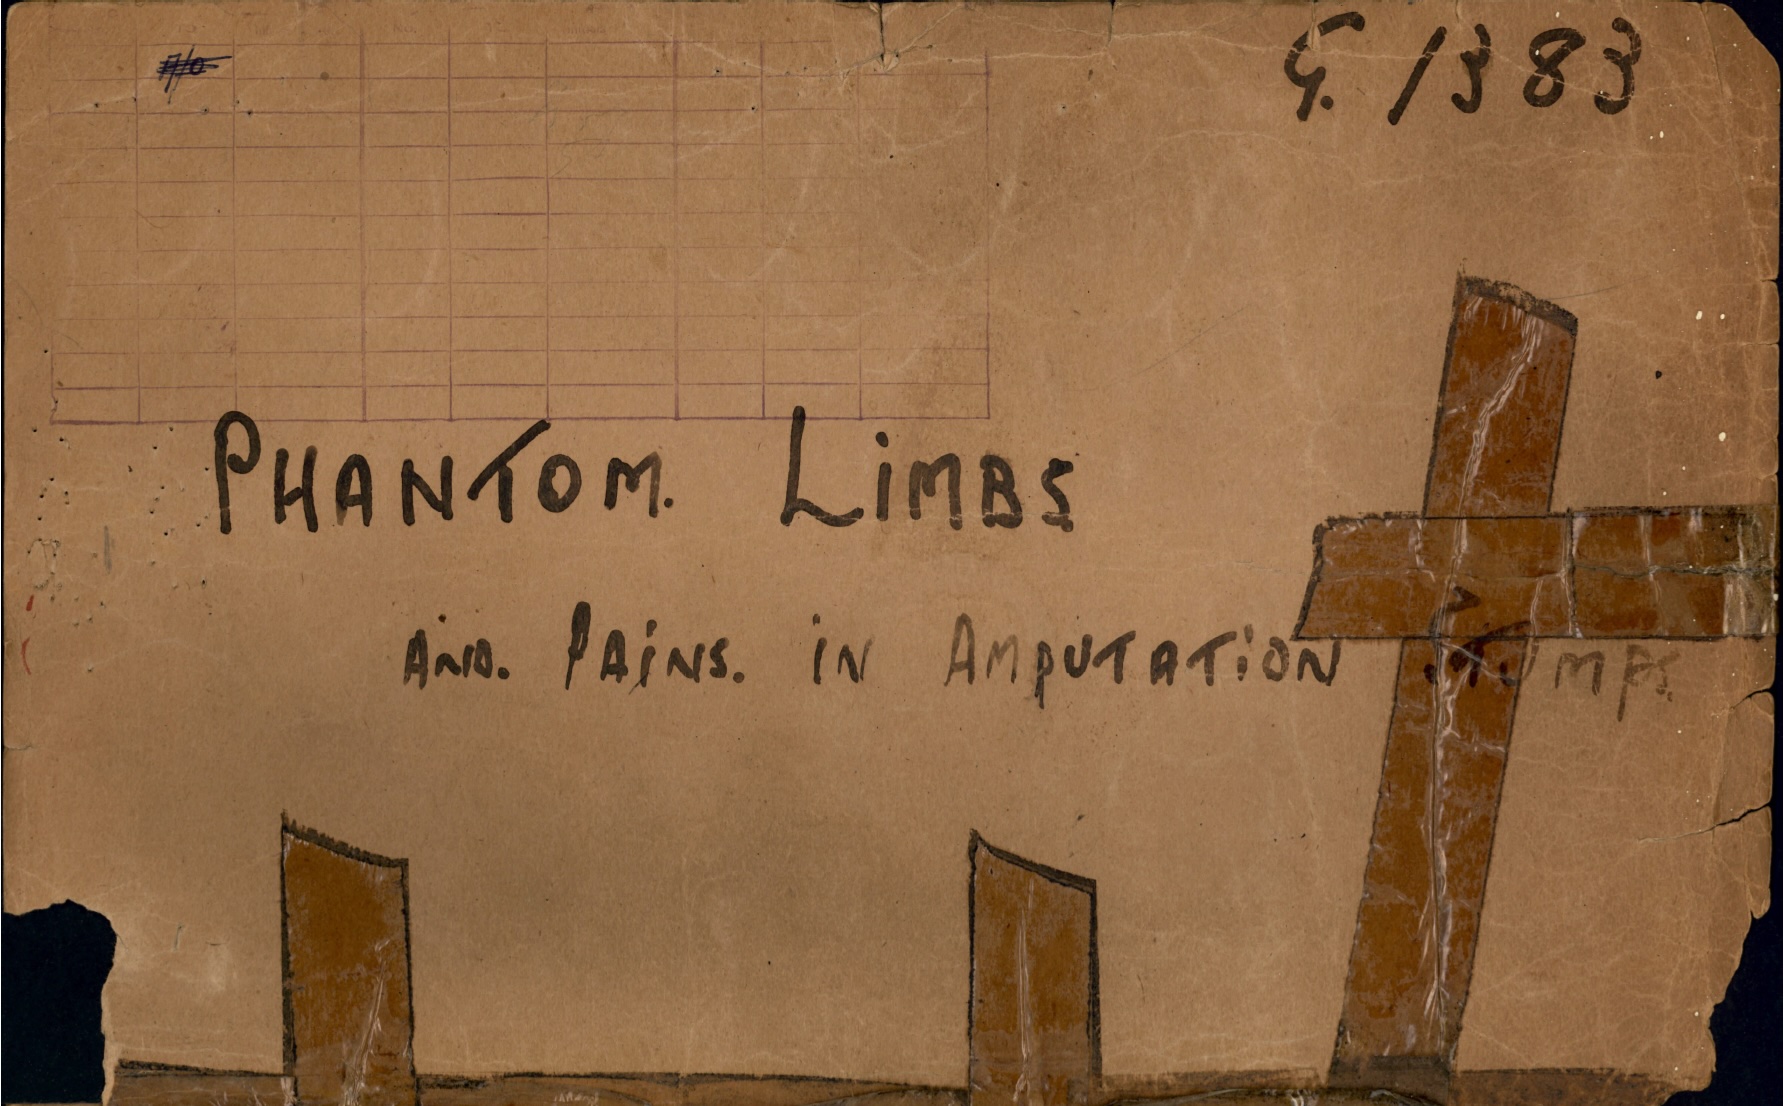 G. 1383
PHANTOM. LiMBS
AND. PAiNS. iN AMPUTATiON STUMPS.